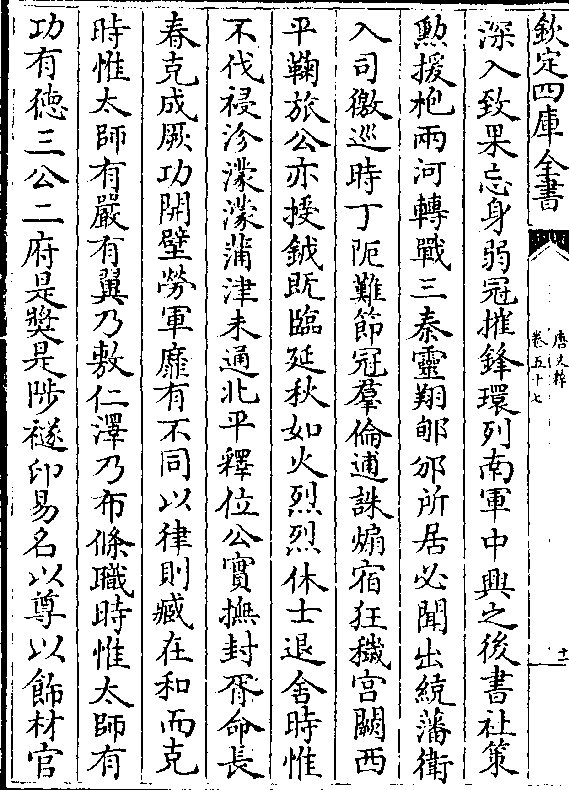 欽定四庫全書
唐文粹
卷五十七
十一
深入致果忘身弱冠摧鋒環列南軍中興之後書社策
勲援枹兩河轉戰三秦靈翔郇邠所居必聞出統藩衛
入司徼巡時丁阨難節冠羣倫逋誅煽宿狂穢宫闕西
平鞠旅公亦授鉞既臨延秋如火烈烈休士退舍時惟
不伐祲沴濛濛蒲津未通北平釋位公實撫封胥命長
春克成厥功開壁勞軍靡有不同以律則臧在和而克
時惟太師有嚴有翼乃敷仁澤乃布條職時惟太師有
功有德三公二府是奬是陟襚印易名以尊以飾材官